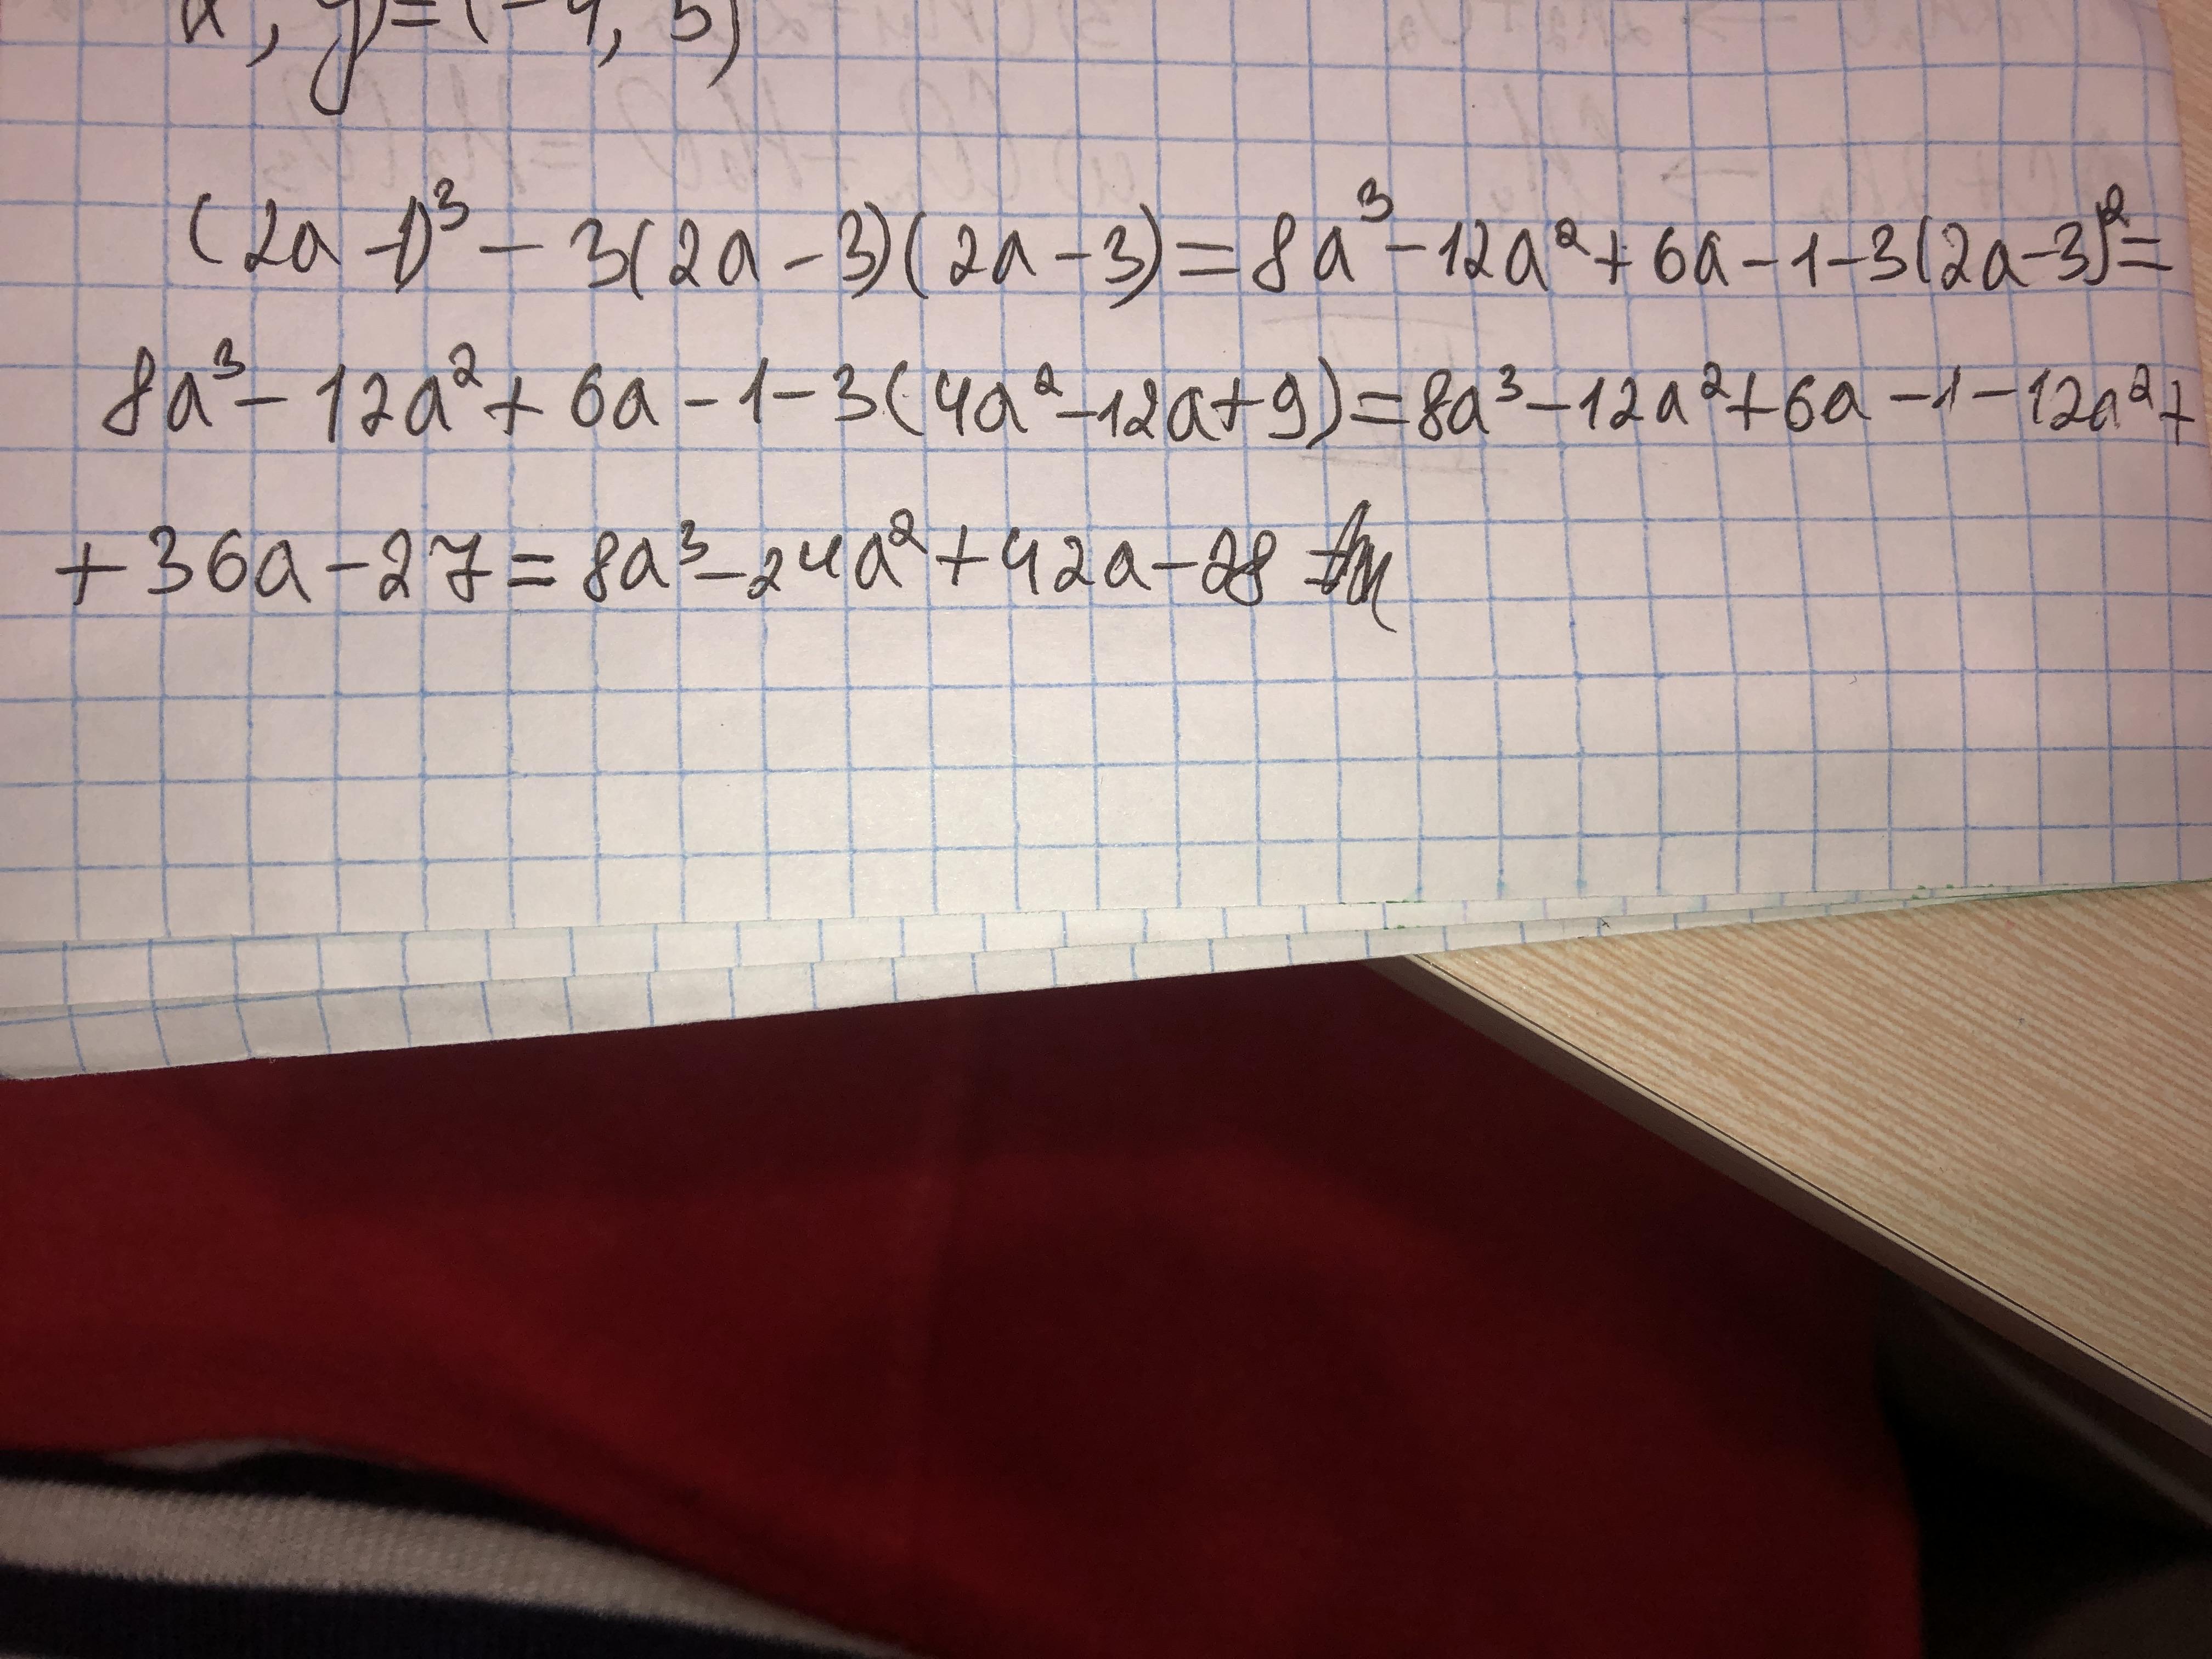 x, y)=(-4, 5)
(2a-1)³-3(2a-3)(2a-3)=8a³-12a²+6a-1-3(2a-3)²=
8a³-12a²+6a-1-3(4a²-12a+9)=8a³-12a²+6a-1-12a²+
+36a-27=8a³-24a²+42a-28